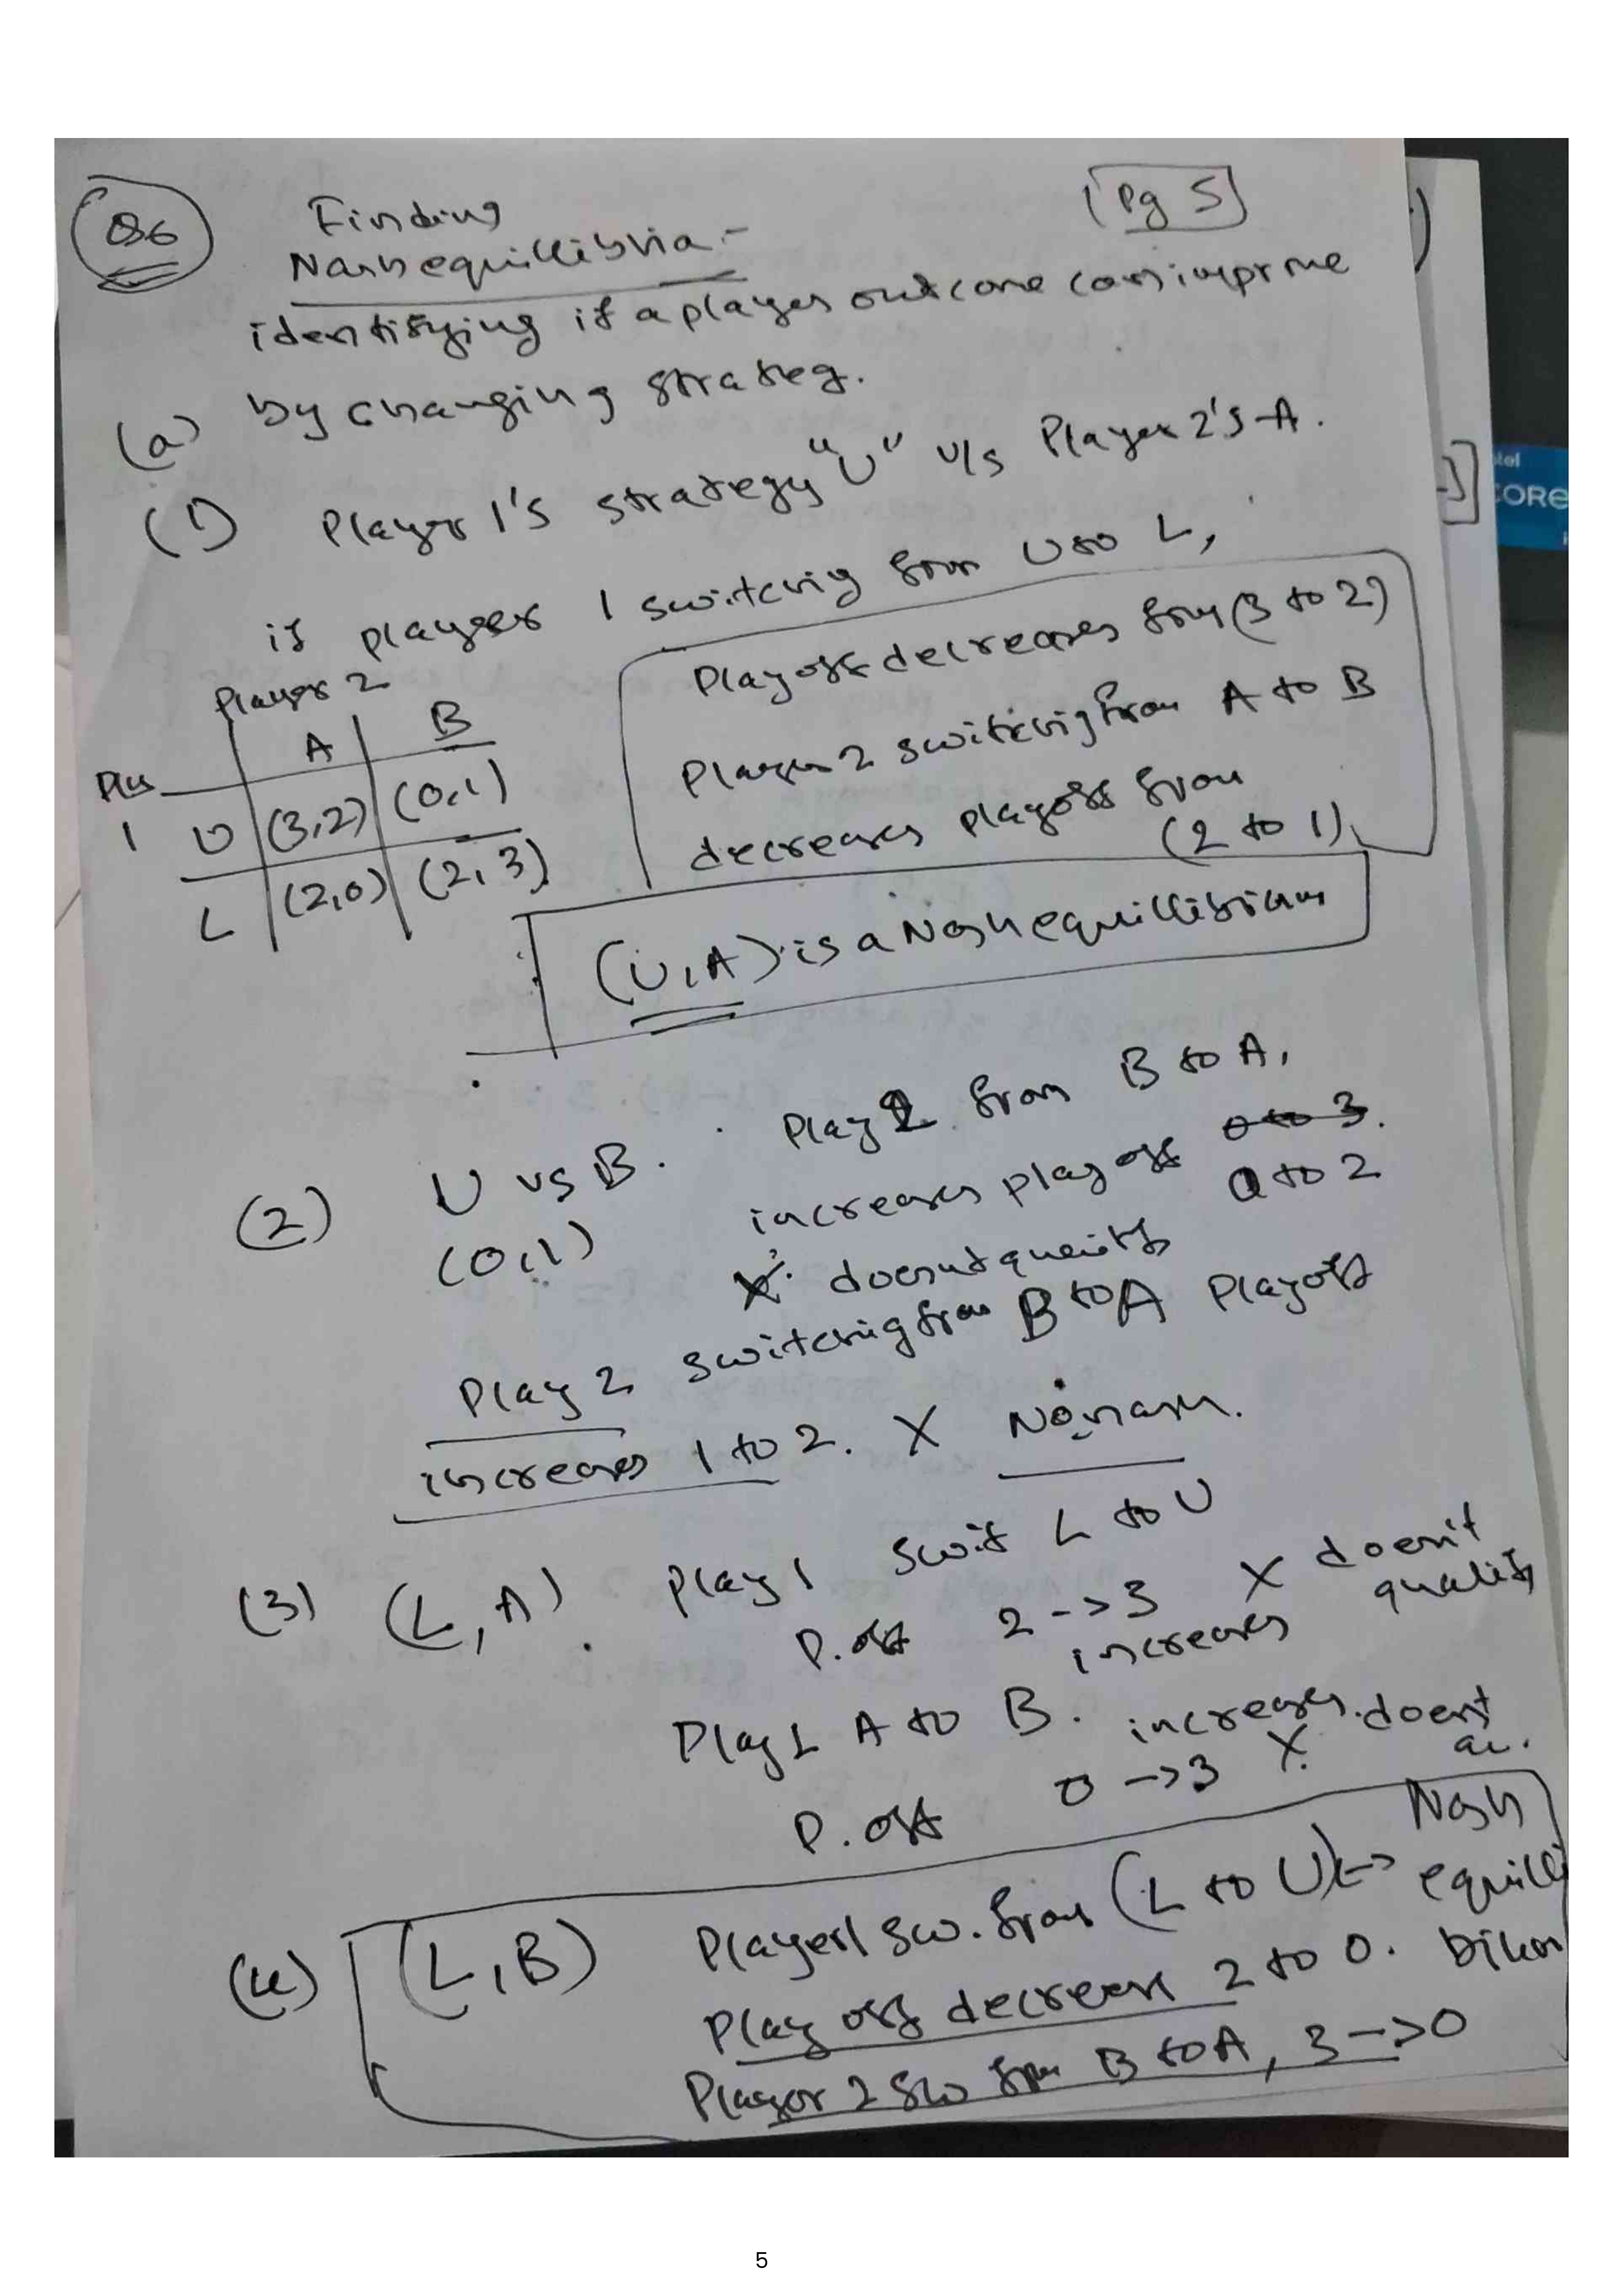 Q6
Finding
Nash equillibria:-
[Pg 5]
identifying if a player outcome can improve
(a) by changing strateg.
(1) Player 1's strategy "U" v/s Player 2's A.
if player 1 switching from U to L,
Playoff decreases from (3 to 2)
Player 2 switching from A to B
decreases playoff from
(2 to 1)
Player 2
A B
1 U (3,2) (0,1)
L (2,0) (2,3)
(U,A) is a Nash equillibrium
(2) U vs B. Play 2 from B to A,
(0,1) increases playoff 0 to 3.
0 to 2
X doesnt qualify
Play 2 switching from B to A Playoff
increases 1 to 2. X No nash.
(3) (L, A). Play 1 swit L to U
P. off 2 -> 3 X doesn't
increases qualify
Play 2 A to B. increases. doesnt
P. off 0 -> 3 X.
(4) (L,B) Player 1 sw. from (L to U) -> Nash
equilli
brium
Play off decrease 2 to 0.
Player 2 sw from B to A, 3 -> 0
CORE
5